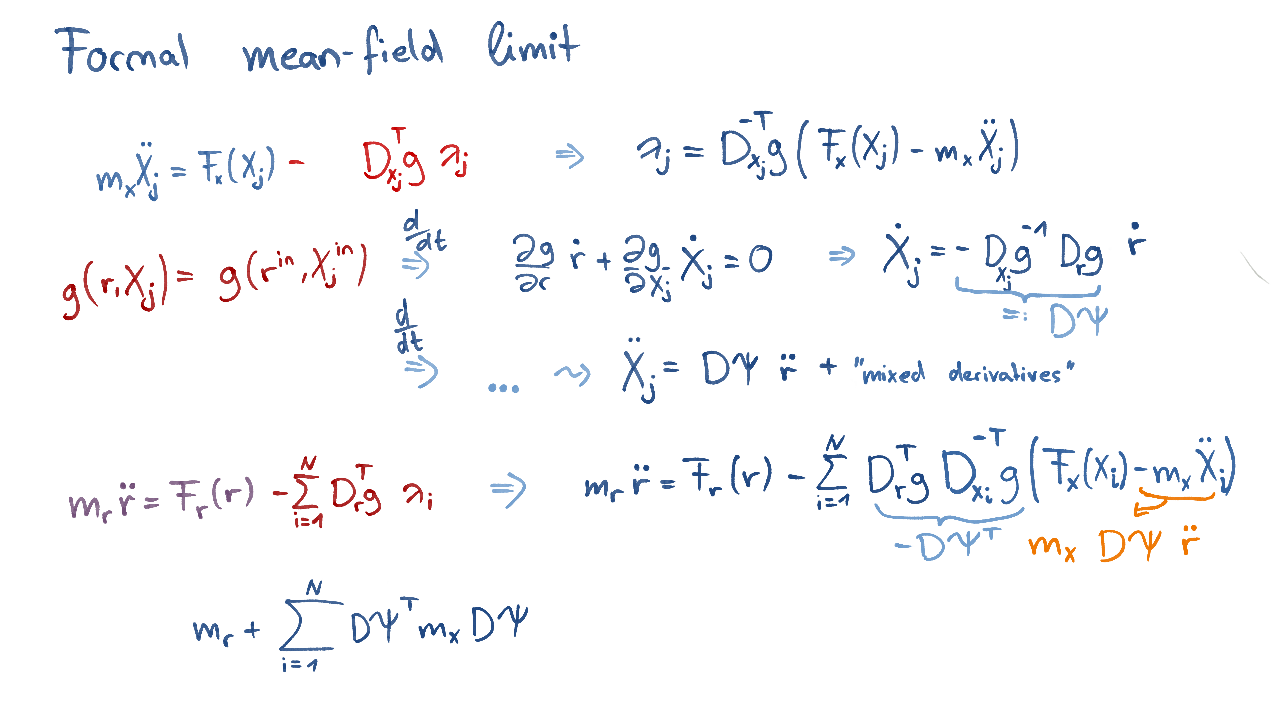 Formal mean-field limit
m_x Ẍ_j = F_x(X_j) - D_{x_j}^T g λ_j ⇒ λ_j = D_{x_j}^{-T} g (F_x(X_j) - m_x Ẍ_j)
g(r, X_j) = g(r^{in}, X_j^{in}) d/dt ⇒ ∂g/∂r ṙ + ∂g/∂X_j Ẋ_j = 0 ⇒ Ẋ_j = - D_{x_j} g^{-1} D_r g ṙ
=: DΨ
d/dt ⇒ ... ⇝ Ẍ_j = DΨ r̈ + "mixed derivatives"
m_r r̈ = F_r(r) - ∑_{i=1}^N D_r^T g λ_i ⇒ m_r r̈ = F_r(r) - ∑_{i=1}^N D_r^T g D_{x_i}^{-T} g (F_x(X_i) - m_x Ẍ_i)
-DΨ^T m_x DΨ r̈
m_r + ∑_{i=1}^N DΨ^T m_x DΨ